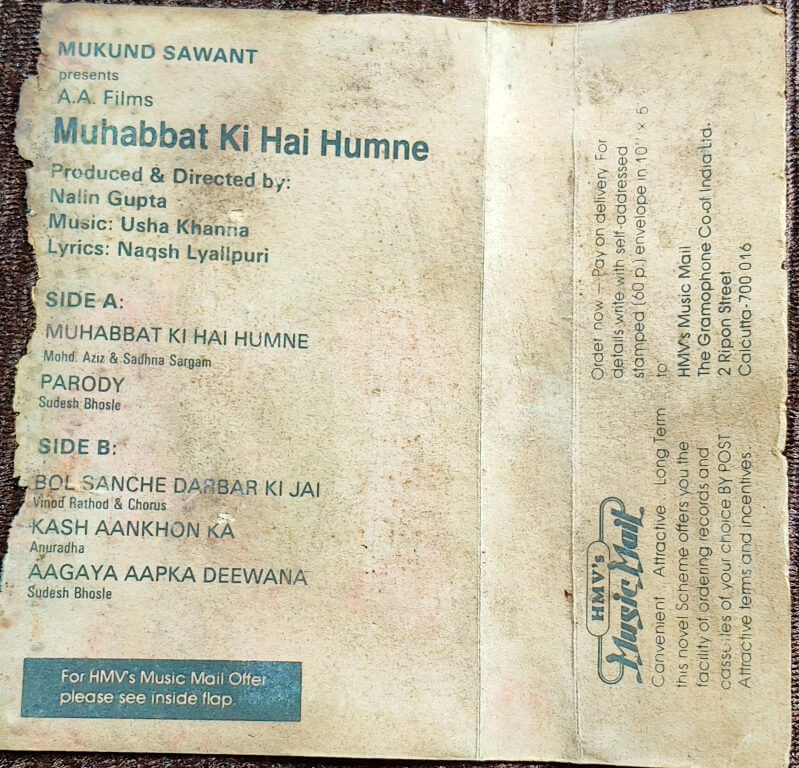 MUKUND SAWANT
presents
A.A. Films
Muhabbat Ki Hai Humne
Produced & Directed by:
Nalin Gupta
Music: Usha Khanna
Lyrics: Naqsh Lyallpuri
SIDE A:
MUHABBAT KI HAI HUMNE
Mohd. Aziz & Sadhna Sargam
PARODY
Sudesh Bhosle
SIDE B:
BOL SANCHE DARBAR KI JAI
Vinod Rathod & Chorus
KASH AANKHON KA
Anuradha
AAGAYA AAPKA DEEWANA
Sudesh Bhosle
For HMV's Music Mail Offer
please see inside flap.
HMV's
Music Mail
Convenient . Attractive . Long Term
this novel Scheme offers you the
facility of ordering records and
cassettes of your choice BY POST
Attractive terms and incentives.
Order now — Pay on delivery. For
details write with self-addressed
stamped (60 p.) envelope in 10" x 5
to
HMV's Music Mail
The Gramophone Co. of India Ltd.
2 Ripon Street
Calcutta-700 016